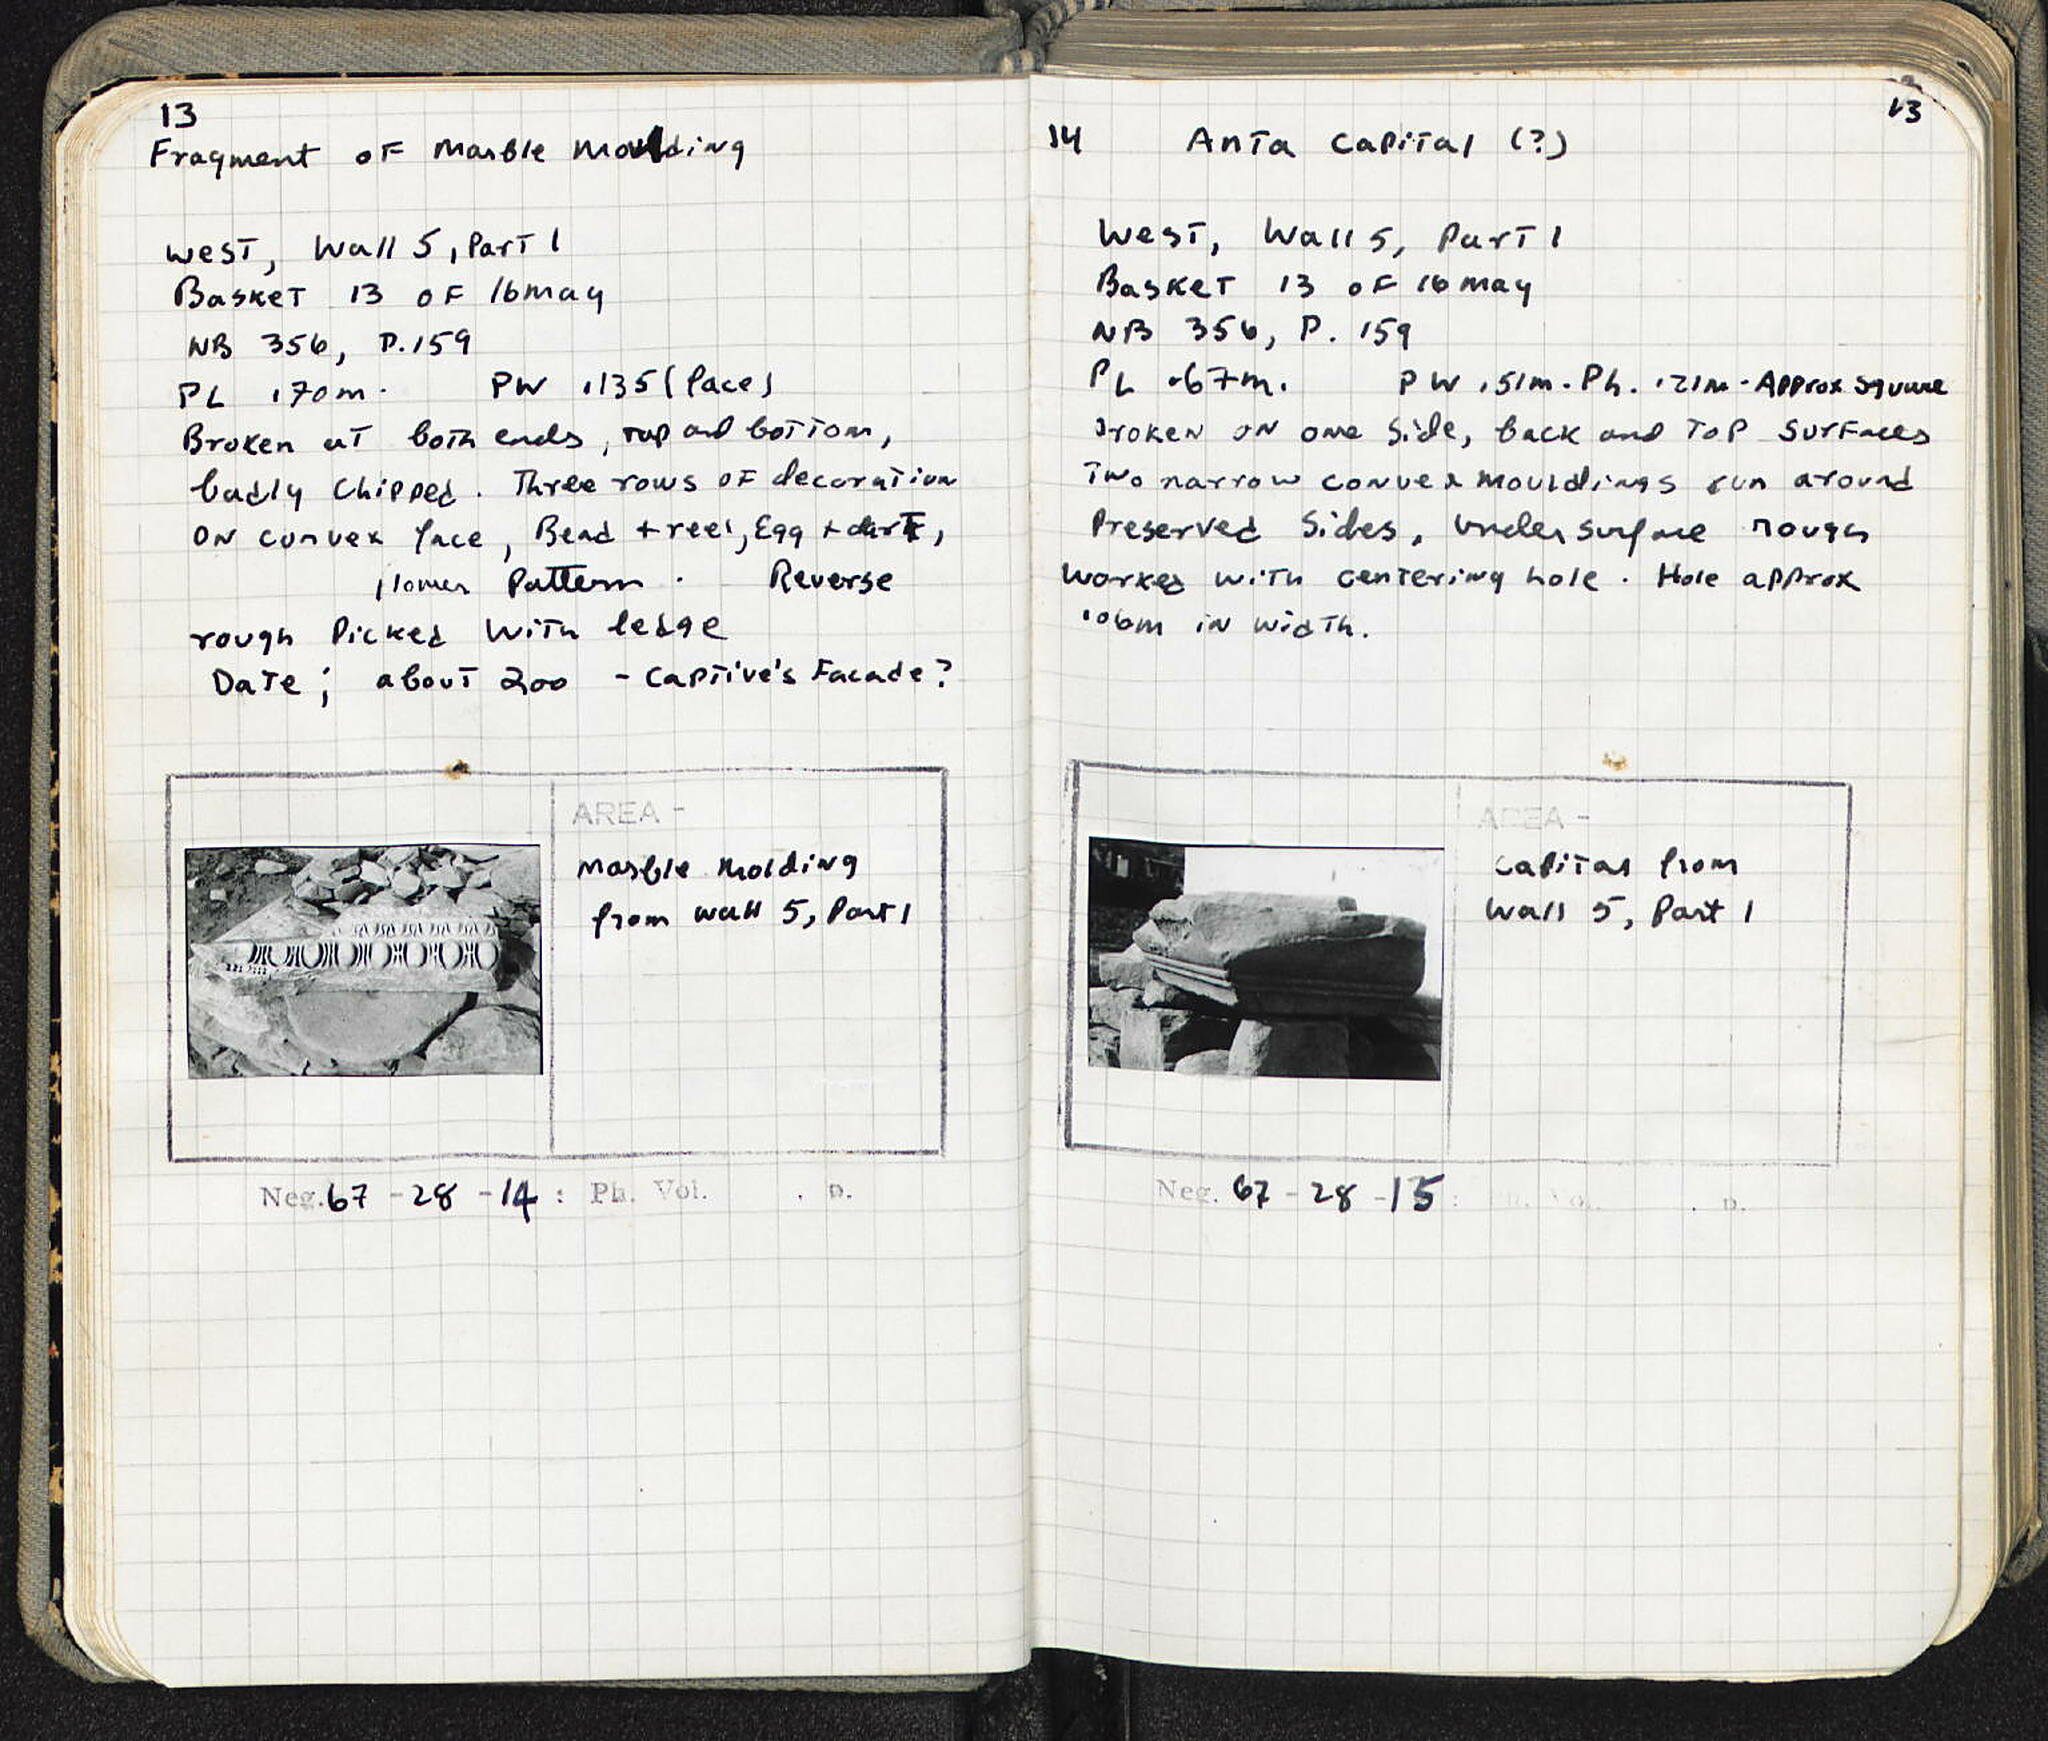 13
Fragment of Marble Moulding
West, Wall 5, Part 1
Basket 13 of 16 May
NB 356, P. 159
PL .70m. PW .135 (face)
Broken at both ends, top and bottom,
badly chipped. Three rows of decoration
on convex face, Bead + reel, Egg + dart,
flower Pattern. Reverse
rough Picked with ledge
Date; about 200 - Captive's Facade?
AREA -
Marble Molding
from Wall 5, Part 1
Neg. 67 - 28 - 14 : Ph. Vol. . p.
13
14 Anta Capital (?)
West, Wall 5, Part 1
Basket 13 of 16 May
NB 356, P. 159
PL .67m. PW .51m. Ph. .21m. Approx square
Broken on one side, back and top surfaces
Two narrow convex mouldings run around
Preserved Sides, under surface rough
worked with centering hole. Hole approx
.06m in width.
AREA -
Capital from
Wall 5, Part 1
Neg. 67 - 28 - 15 : Ph. Vol. . p.